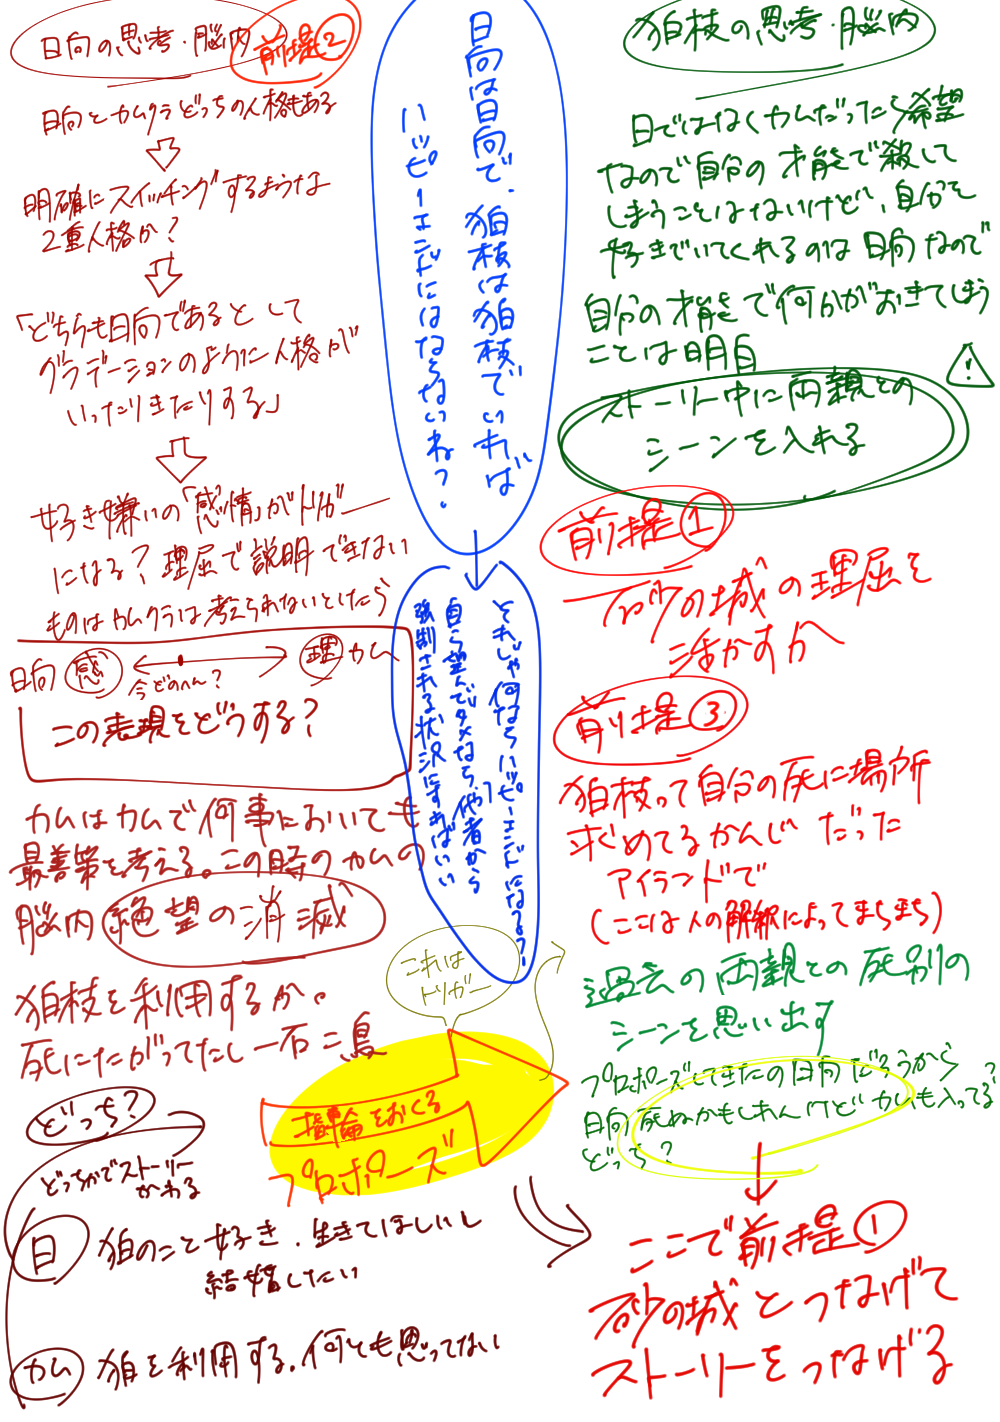 日向の思考・脳内
前提②
日向とカムクラどっちの人格もある
明確にスイッチングするような
2重人格か?
「どちらも日向であるとして
グラデーションのように人格が
いったりきたりする」
好き嫌いの「感情」がトリガー
になる?理屈で説明できない
ものはカムクラは考えられないとしたら
日向 感 理 カム
今どのへん?
この表現をどうする?
カムはカムで何事においても
最善策を考える。この時のカムの
脳内 絶望の消滅
狛枝を利用するか。
死にたがってたし一石二鳥
どっち?
どっちかでストーリー
かわる
日 狛のこと好き、生きてほしいし
結婚したい
カム 狛を利用する。何とも思ってない
日向は日向で、狛枝は狛枝でいれば
ハッピーエンドにはならないね?
それじゃ何ならハッピーエンドになる?
自ら望んでダメなら、他者から
強制される状況にすればいい
これは
トリガー
指輪をおくる
プロポーズ
狛枝の思考・脳内
日ではなくカムだったら希望
なので自分の才能で殺して
しまうことはないけど、自分を
好きでいてくれるのは日向なので
自分の才能で何かがおきてしまう
ことは明白
!
ストーリー中に両親との
シーンを入れる
前提①
砂の城の理屈を
活かすか
前提③
狛枝って自分の死に場所
求めてるかんじだった
アイランドで
(ここは人の解釈によってまちまち)
過去の両親との死別の
シーンを思い出す
プロポーズしてきたの日向だろうから
日向死ぬかもしれんけどカムも入ってる?
どっち?
ここで前提①
砂の城とつなげて
ストーリーをつなげる